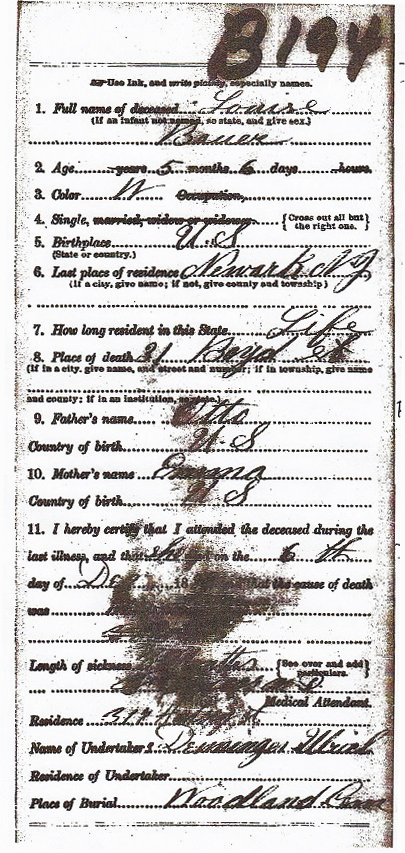 B194
Use Ink, and write plainly, especially names.
1. Full name of deceased Louise
(If an infant not named, so state, and give sex.)
Bauer
2. Age years 5 months 6 days hours
3. Color W Occupation,
4. Single, married, widow or widower { Cross out all but the right one. }
5. Birthplace U.S
(State or country.)
6. Last place of residence Newark N J
(If a city, give name; if not, give county and township)
7. How long resident in this State Life
8. Place of death 21 Boyd St
(If in a city, give name, and street and number; if in township, give name
and county; if in an institution, so state.)
9. Father's name Otto
Country of birth U S
10. Mother's name Emma
Country of birth U S
11. I hereby certify that I attended the deceased during the
last illness, and that she died on the 6 th
day of Dec 18 that the cause of death
was
Length of sickness { See over and add particulars. }
Medical Attendant.
Residence
Name of Undertaker Ulrich
Residence of Undertaker
Place of Burial Woodland Cem